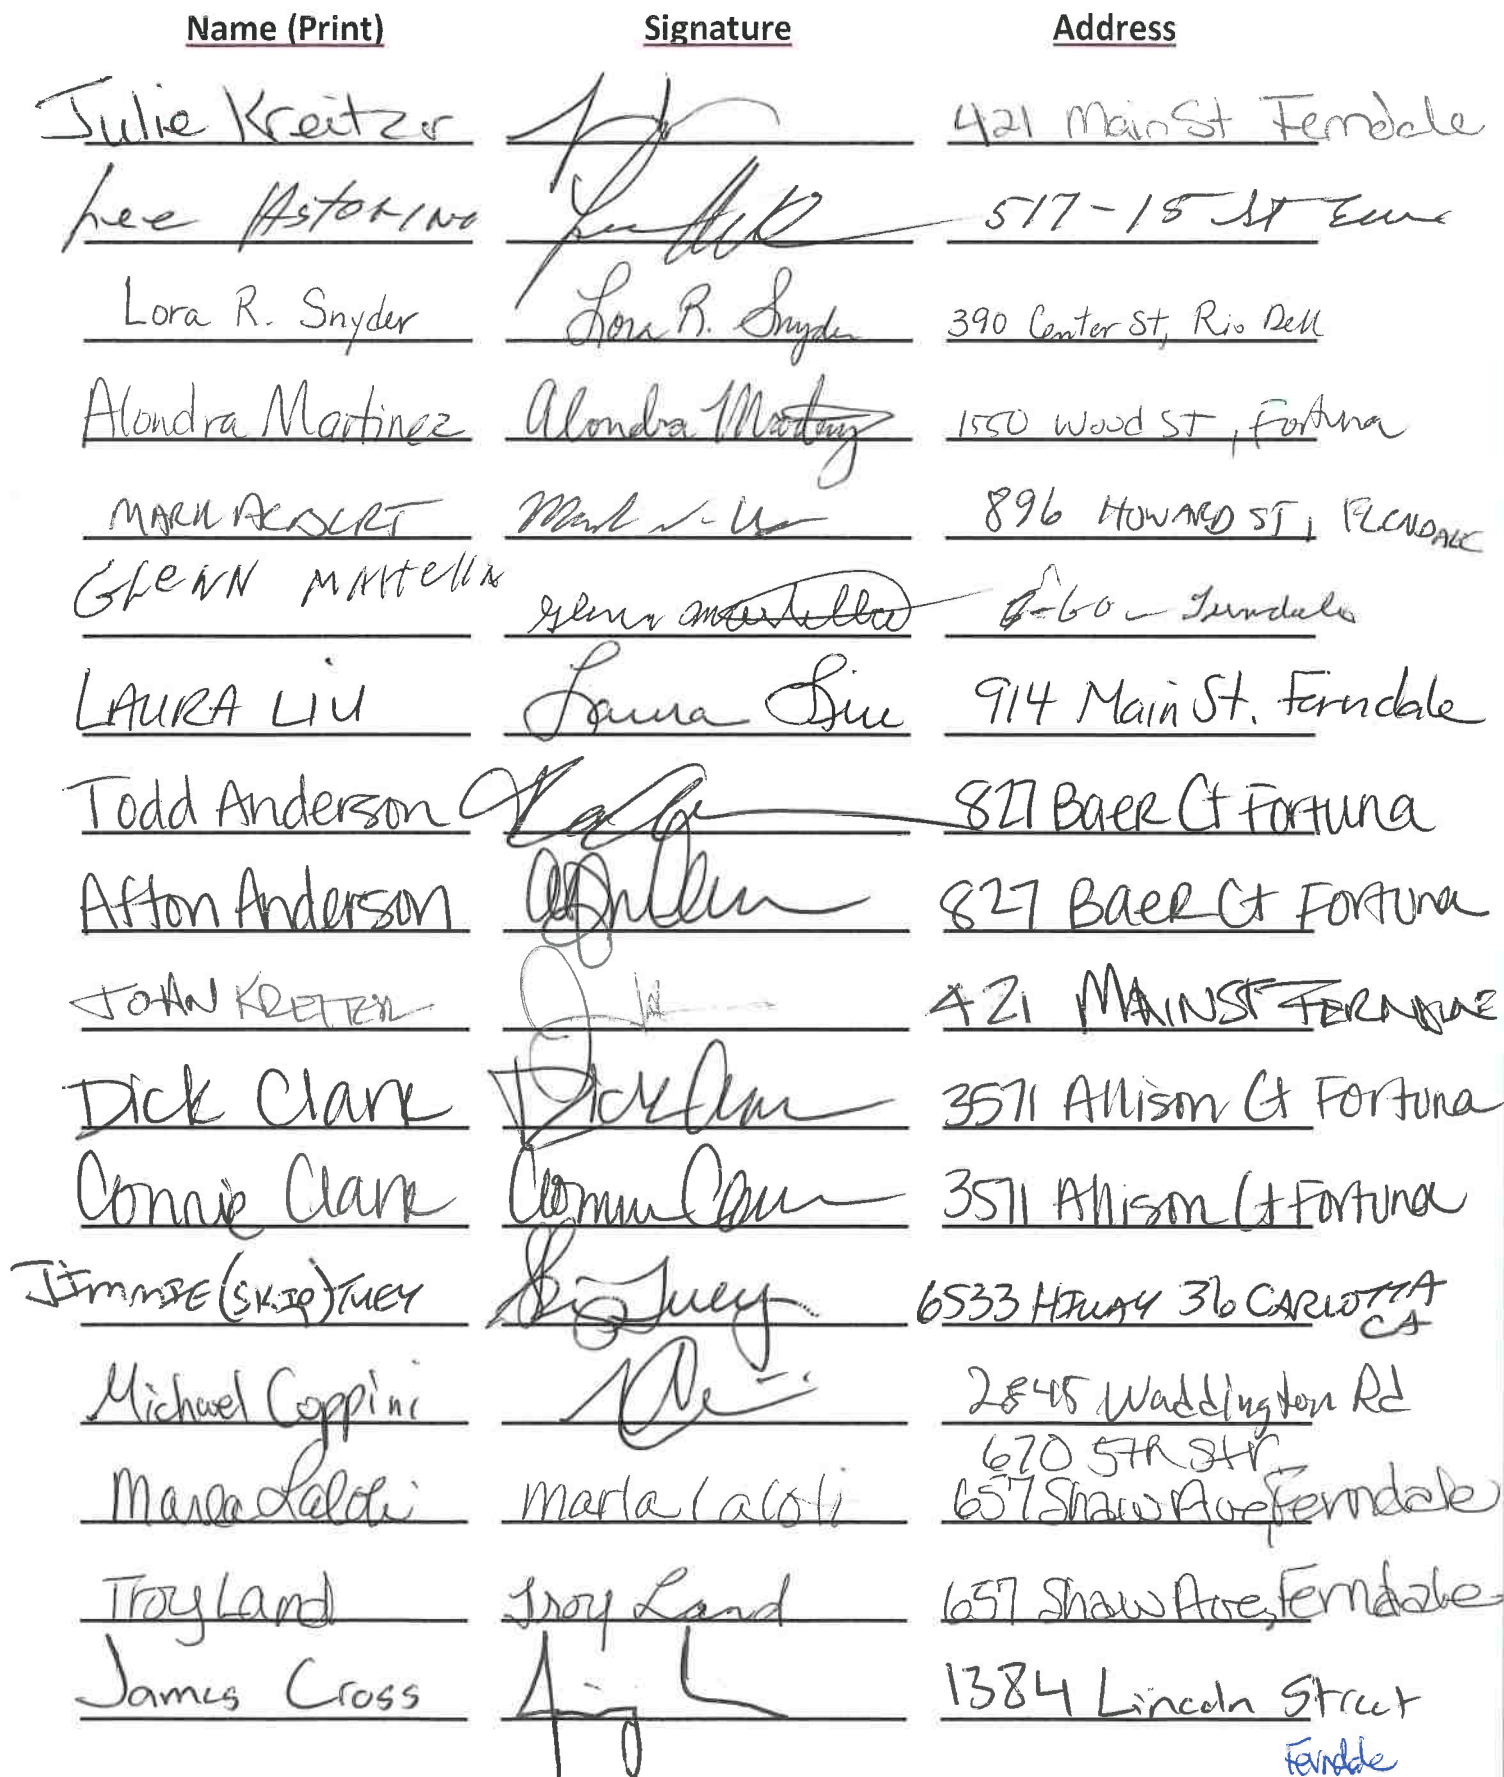 Name (Print) Signature Address
Julie Kreitzer 421 Main St Ferndale
Lee Astorino 517-15 St
Lora R. Snyder Lora R. Snyder 390 Center St, Rio Dell
Alondra Martinez Alondra Martinez 1550 Wood St, Fortuna
MARK 896 HOWARD ST, FERNDALE
GLENN MARTELLA Glenn Martella Ferndale
LAURA LIU Laura Liu 914 Main St. Ferndale
Todd Anderson 827 Baer Ct Fortuna
Afton Anderson 827 Baer Ct Fortuna
JOHN KREITZER 421 MAIN ST FERNDALE
Dick Clark Dick Clark 3571 Allison Ct Fortuna
Connie Clark Connie Clark 3571 Allison Ct Fortuna
JIMMIE (SKIP) TUEY Skip Tuey 6533 HIWAY 36 CARLOTTA
CA
Michael Coppini 2845 Waddington Rd
670 5th Str
Marla Marla 657 Shaw Ave, Ferndale
Troy Land Troy Land 657 Shaw Ave, Ferndale
James Cross 1384 Lincoln Street
Ferndale